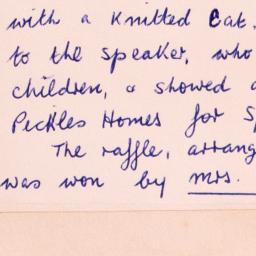 with a Knitted Cat.
to the speaker, who
children, & showed
Pickles Homes for
The raffle, arrang
was won by mrs.